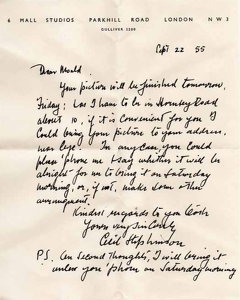 6 MALL STUDIOS PARKHILL ROAD LONDON NW3
GULLIVER 3289
Sept 22 55
Dear
Your picture will be finished tomorrow,
Friday; as I have to be in Hornsey Road
about 10, if it is convenient for you I
could bring your picture to your address,
In any case you could
please 'phone me & say whether it will be
alright for me to bring it on Saturday
morning, or, if not, make some other
arrangement.
Kindest regards to you both
Yours very sincerely
Cecil Stephenson
P.S. On Second Thoughts, I will bring it
unless you 'phone on Saturday morning